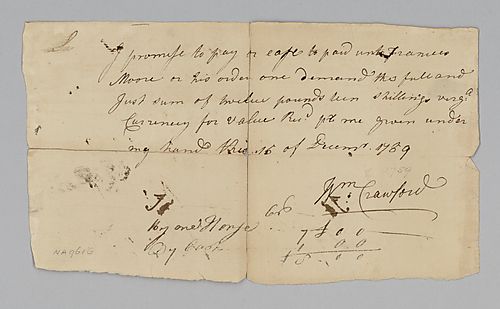 I promise to pay or cause to paid unto Frances
Moore or his order one demand this full and
Just sum of twelve pounds ten shillings virga
Currency for value Recd pr me given under
my hand this 16 of Decmr 1789
Wm Crawford
By one Horse
By Cash
7 0 0
1 0 0
8 0 0
NA9616